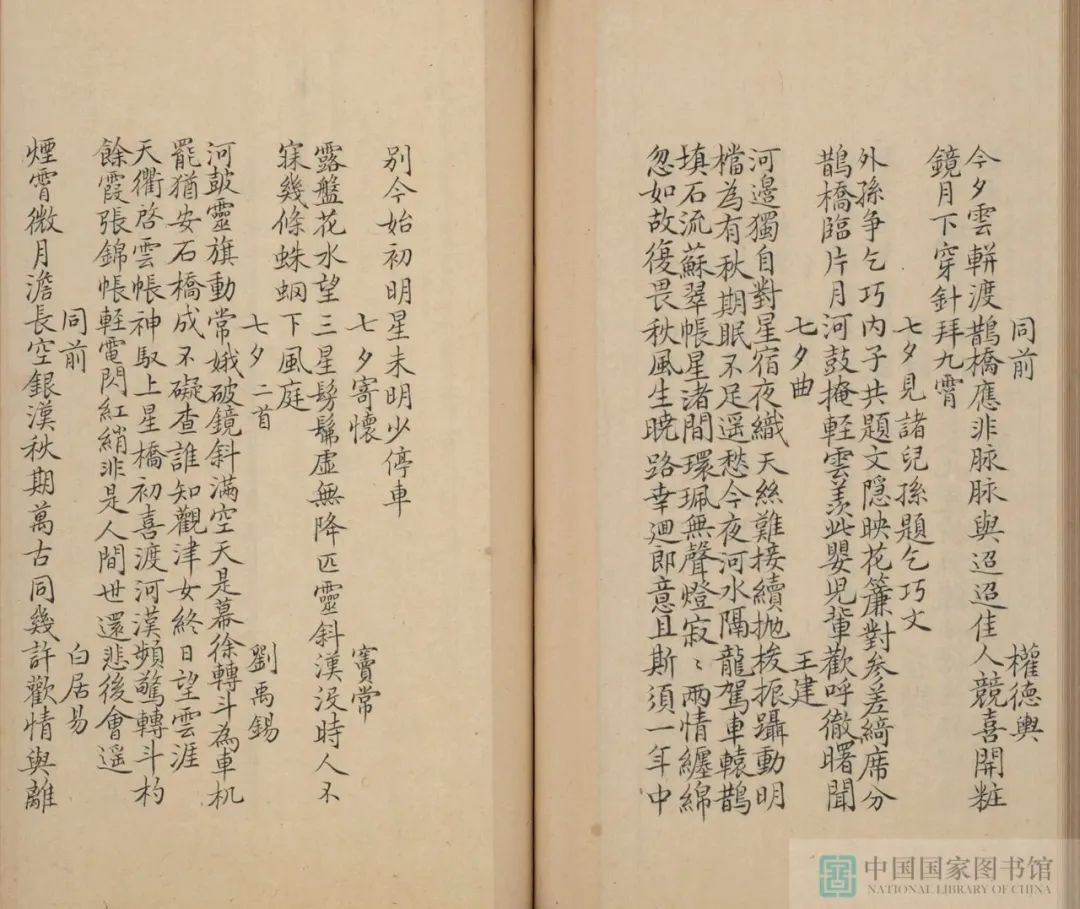 同前 權德輿
今夕雲軿渡鵲橋應非脉脉與迢迢佳人競喜開粧
鏡月下穿針拜九霄
七夕見諸兒孫題乞巧文
外孫争乞巧内子共題文隱映花簾對参差綺席分
鵲橋臨片月河鼓掩軽雲羨此嬰兒輩歡呼徹曙聞
七夕曲 王建
河邊獨自對星宿夜織天絲難接續抛梭振躡動明
檔為有秋期眠不足遥愁今夜河水隔龍駕車轅鵲
填石流蘇翠帳星渚間環珮無聲燈寂〻兩情纏綿
忽如故復畏秋風生曉路幸迴郎意且斯須一年中
別今始初明星未明少停車
七夕寄懷 竇常
露盤花水望三星髣髴虛無降匹靈斜漢没時人不
寐幾條蛛蛧下風庭
七夕二首 劉禹錫
河鼓靈旗動常娥破鏡斜滿空天是幕徐轉斗為車机
罷猶安石橋成不礙查誰知觀津女終日望雲涯
天衢啓雲帳神馭上星橋初喜渡河漢頻驚轉斗杓
餘霞張錦帳軽電閃紅綃非是人間世還悲後會遥
同前 白居易
煙霄微月澹長空銀漢秋期萬古同幾許歡情與離
中国国家图书馆
NATIONAL LIBRARY OF CHINA